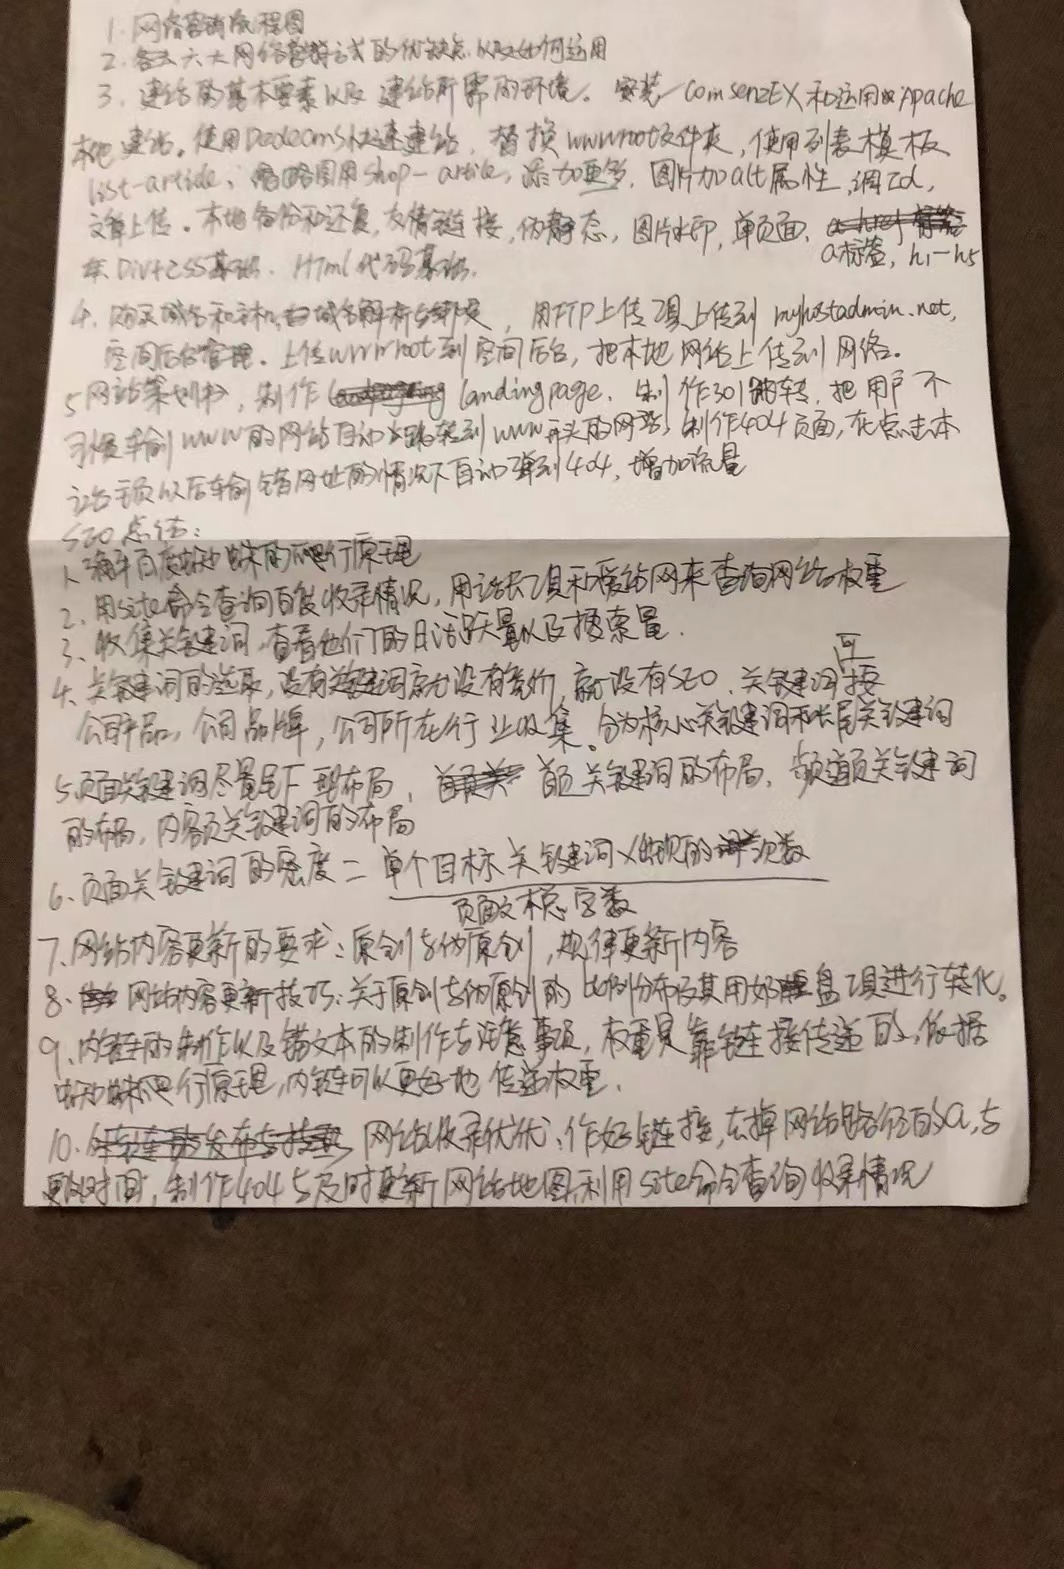 1. 网络营销流程图
2. 各大六大网络营销方式的优缺点以及如何运用
3. 建站的基本要素以及建站所需的环境。安装ComsenzEX和运用Apache
本地建站。使用Dedecms快速建站,替换wwwroot文件夹,使用列表模板
list-article,缩略图用shop-article,添加更多,图片加alt属性,调Id,
文章上传。本地备份和还原,友情链接,伪静态,图片水印,单页面、a标签,h1-h5
Div+css基础、Html代码基础,
4. 购买域名和主机,域名解析与绑定,用FTP上传工具上传到myhostadmin.net,
空间后台管理。上传wwwroot到空间后台,把本地网站上传到网络。
5 网站策划书,制作landingpage,制作301跳转,把用户不
习惯输www的网站自动跳转到www开头的网站,制作404页面,在点击本
站主页以后输错网址的情况下自动弹到404,增加流量
SEO总结:
1、了解百度蜘蛛的爬行原理
2、用site命令查询百度收录情况,用站长工具和爱站网来查询网站权重
3、收集关键词,查看他们的日活跃量以及搜索量.
4、关键词的选取,没有关键词就没有竞价,就没有SEO、关键词可按
公司产品,公司品牌,公司所在行业收集。分为核心关键词和长尾关键词
5.页面关键词尽量呈F型布局,首页关键词的布局,频道页关键词
的布局,内容页关键词的布局
6、页面关键词的密度=单个目标关键词×出现的次数
页面文本总字数
7、网站内容更新的要求:原创与伪原创,规律更新内容
8、网站内容更新技巧:关于原创与伪原创的比例分布及其用工具进行转化。
9、内链的制作以及锚文本的制作与注意事项,权重是靠链接传递的,依据
蜘蛛爬行原理,内链可以更好地传递权重.
10、网站收录优化、作好链接,去掉网站路径的a,与
更改时间,制作404与及时更新网站地图,利用site命令查询收录情况